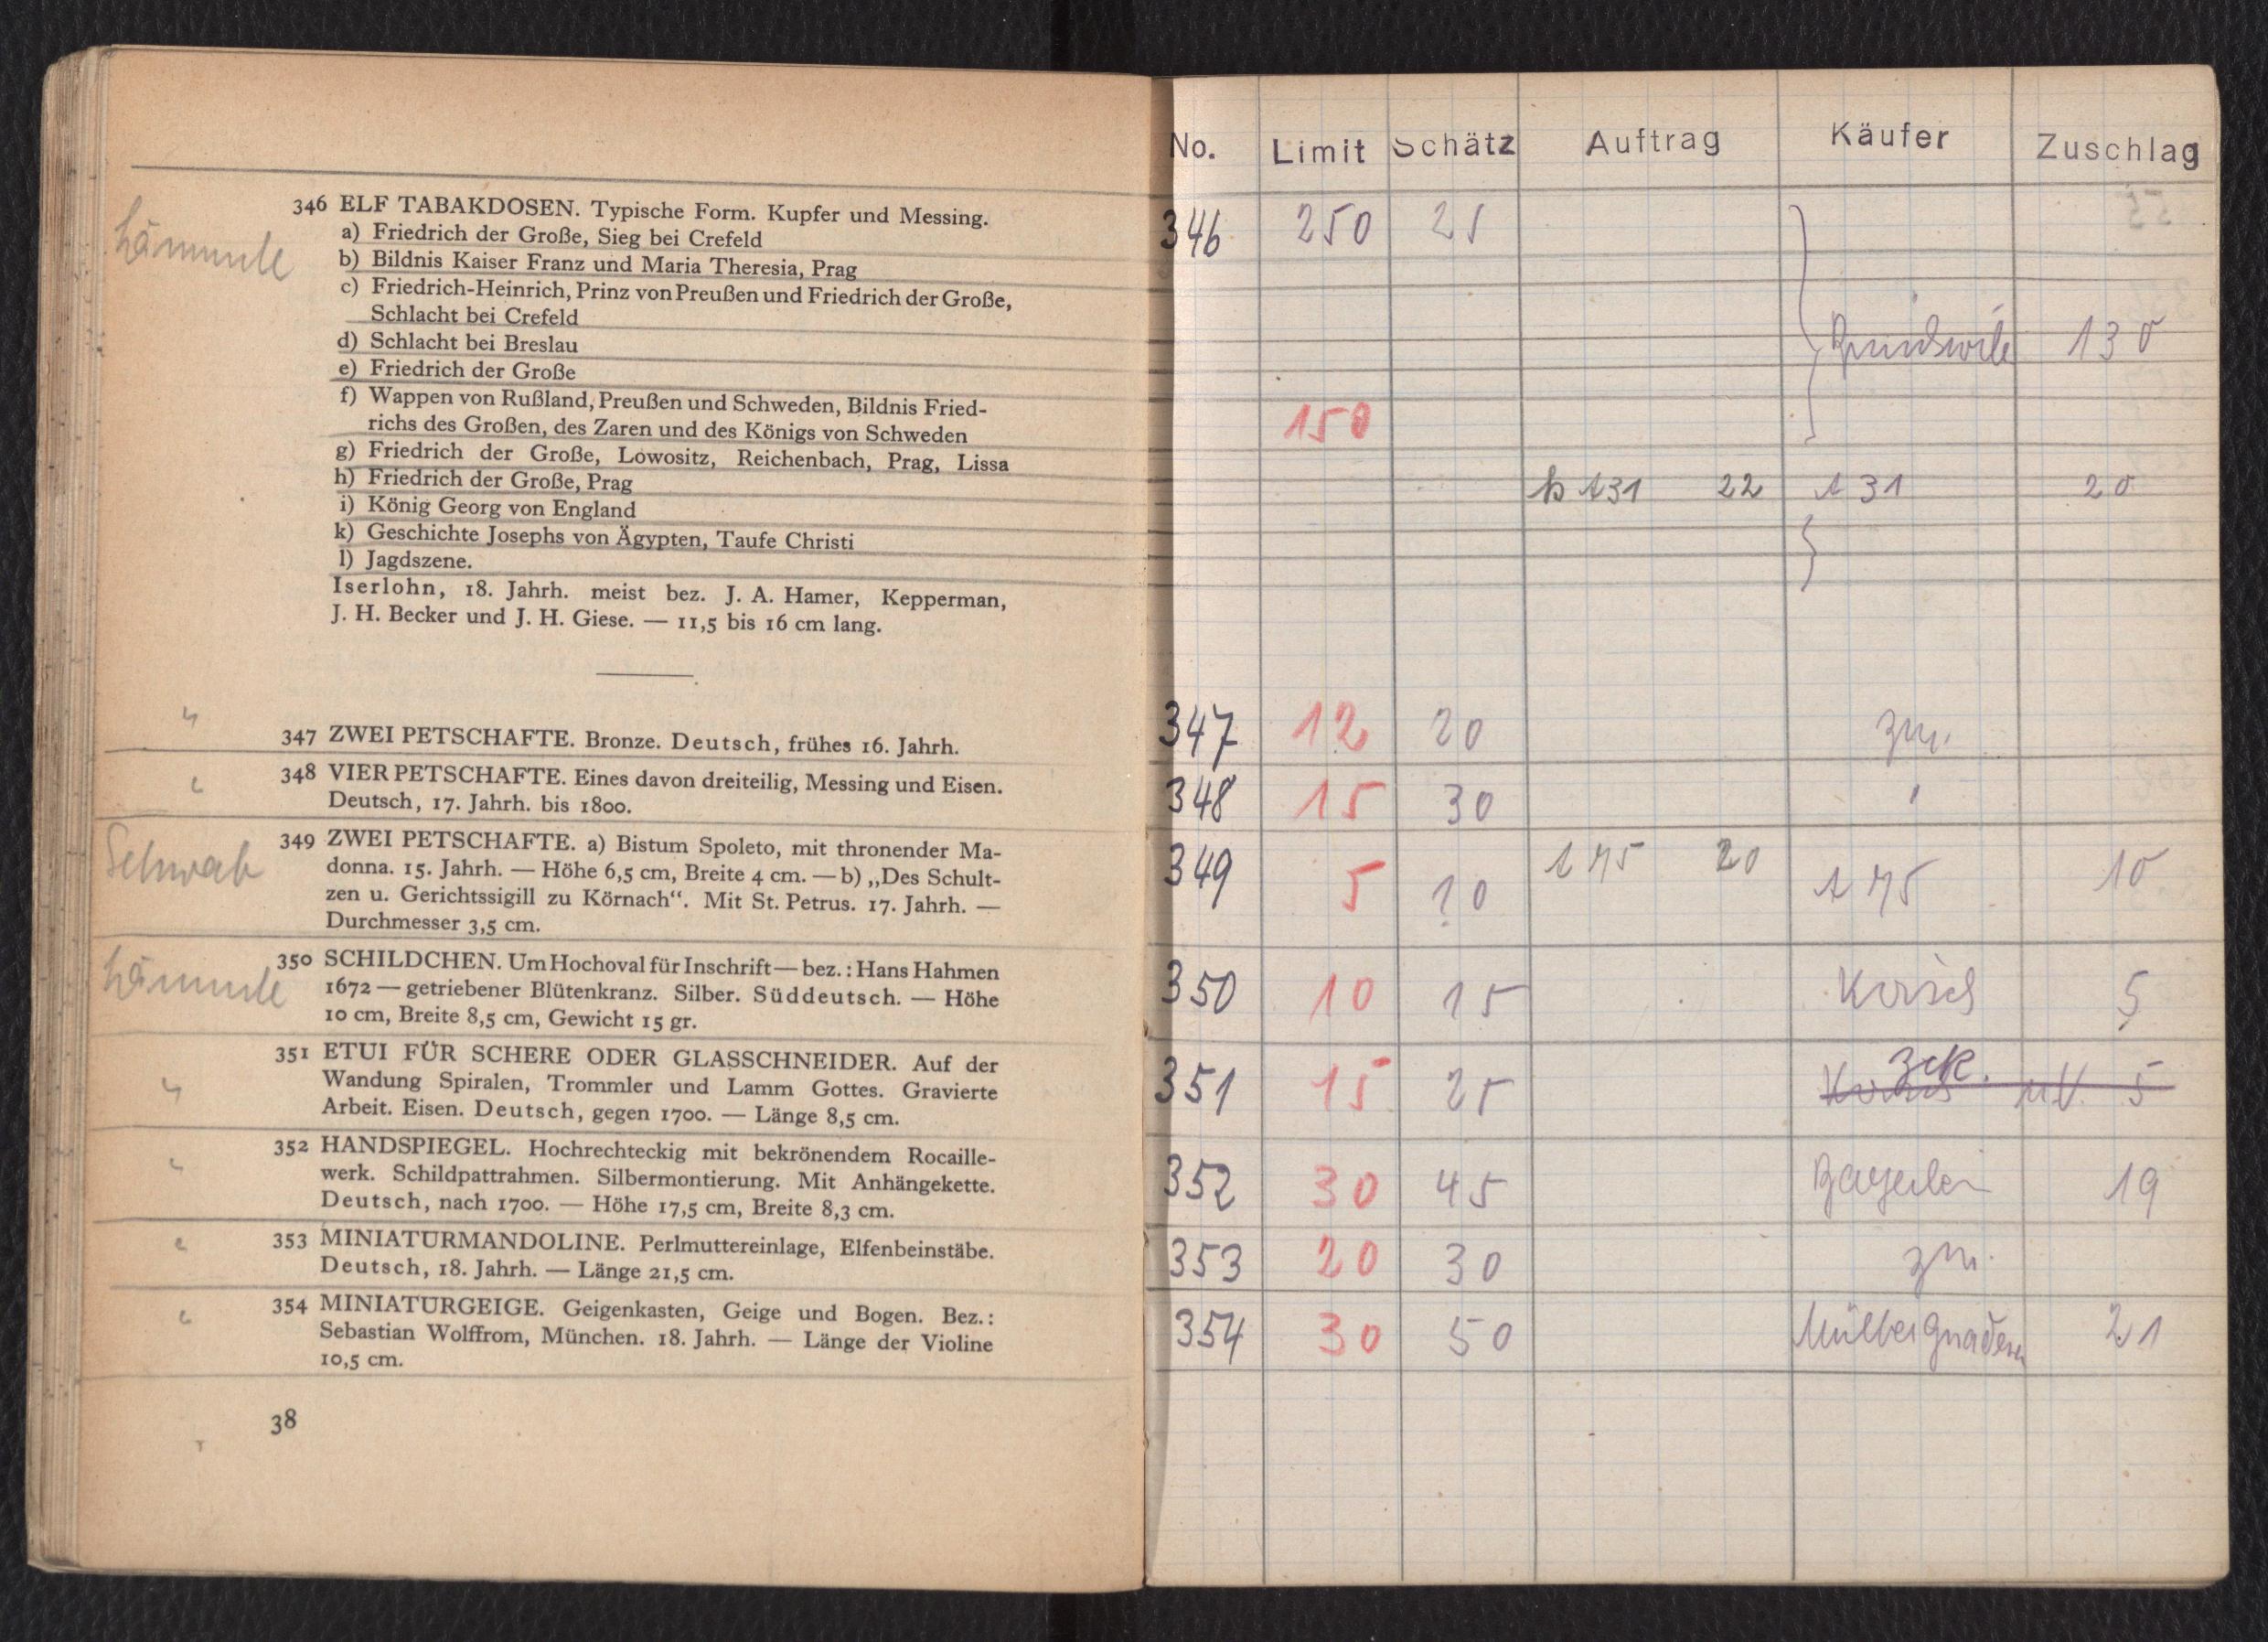 346 ELF TABAKDOSEN. Typische Form. Kupfer und Messing.
Lämmle
a) Friedrich der Große, Sieg bei Crefeld
b) Bildnis Kaiser Franz und Maria Theresia, Prag
c) Friedrich-Heinrich, Prinz von Preußen und Friedrich der Große,
Schlacht bei Crefeld
d) Schlacht bei Breslau
e) Friedrich der Große
f) Wappen von Rußland, Preußen und Schweden, Bildnis Fried-
richs des Großen, des Zaren und des Königs von Schweden
g) Friedrich der Große, Lowositz, Reichenbach, Prag, Lissa
h) Friedrich der Große, Prag
i) König Georg von England
k) Geschichte Josephs von Ägypten, Taufe Christi
l) Jagdszene.
Iserlohn, 18. Jahrh. meist bez. J. A. Hamer, Kepperman,
J. H. Becker und J. H. Giese. — 11,5 bis 16 cm lang.
347 ZWEI PETSCHAFTE. Bronze. Deutsch, frühes 16. Jahrh.
348 VIER PETSCHAFTE. Eines davon dreiteilig, Messing und Eisen.
Deutsch, 17. Jahrh. bis 1800.
Schwab
349 ZWEI PETSCHAFTE. a) Bistum Spoleto, mit thronender Ma-
donna. 15. Jahrh. — Höhe 6,5 cm, Breite 4 cm. — b) „Des Schult-
zen u. Gerichtssigill zu Körnach“. Mit St. Petrus. 17. Jahrh. —
Durchmesser 3,5 cm.
Lämmle
350 SCHILDCHEN. Um Hochoval für Inschrift — bez.: Hans Hahmen
1672 — getriebener Blütenkranz. Silber. Süddeutsch. — Höhe
10 cm, Breite 8,5 cm, Gewicht 15 gr.
351 ETUI FÜR SCHERE ODER GLASSCHNEIDER. Auf der
Wandung Spiralen, Trommler und Lamm Gottes. Gravierte
Arbeit. Eisen. Deutsch, gegen 1700. — Länge 8,5 cm.
352 HANDSPIEGEL. Hochrechteckig mit bekrönendem Rocaille-
werk. Schildpattrahmen. Silbermontierung. Mit Anhängekette.
Deutsch, nach 1700. — Höhe 17,5 cm, Breite 8,3 cm.
353 MINIATURMANDOLINE. Perlmuttereinlage, Elfenbeinstäbe.
Deutsch, 18. Jahrh. — Länge 21,5 cm.
354 MINIATURGEIGE. Geigenkasten, Geige und Bogen. Bez.:
Sebastian Wolffrom, München. 18. Jahrh. — Länge der Violine
10,5 cm.
38
No. Limit Schätz Auftrag Käufer Zuschlag
346 250 25
130
150
h 131 22 131 20
347 12 20 zur.
348 15 30 "
349 5 10 175 20 175 10
350 10 15 Korsch 5
351 15 25 zck. 5
352 30 45 Bayerlein 19
353 20 30 zur.
354 30 50 21